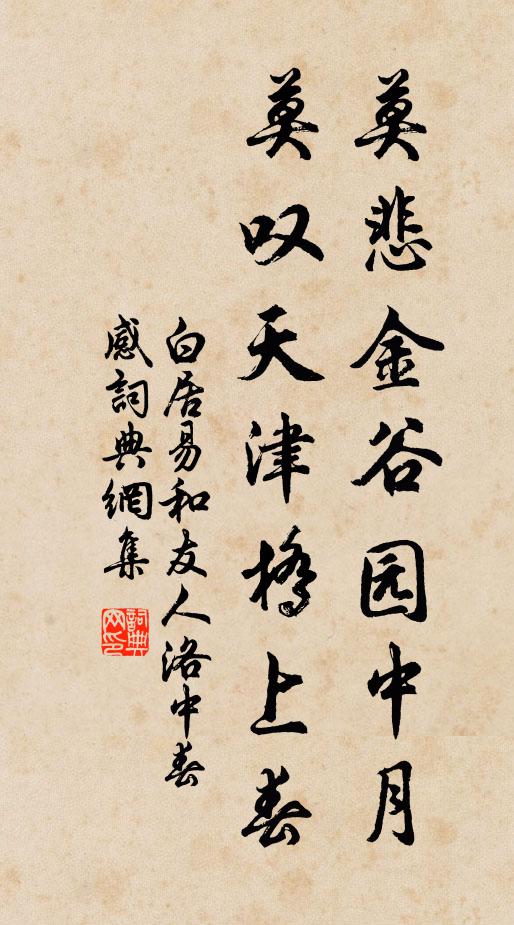 莫悲金谷园中月
莫叹天津橋上春
白居易和友人洛中春
感詞典網集
詞典网印